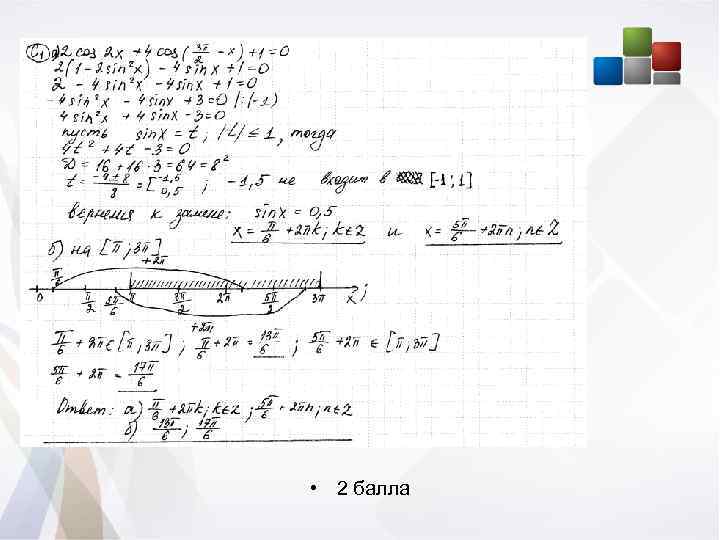 C1 а) 2 cos 2x + 4 cos(3π/2 - x) + 1 = 0
2(1 - 2 sin²x) - 4 sin x + 1 = 0
2 - 4 sin²x - 4 sin x + 1 = 0
-4 sin²x - 4 sin x + 3 = 0 |:(-1)
4 sin²x + 4 sin x - 3 = 0
пусть sin x = t; |t| ≤ 1, тогда
4t² + 4t - 3 = 0
D = 16 + 16·3 = 64 = 8²
t = (-4 ± 8)/8 = [-1,5 0,5 ; -1,5 не входит в [-1;1]
Вернемся к замене: sin x = 0,5
x = π/6 + 2πk; k ∈ Z и x = 5π/6 + 2πn; n ∈ Z
б) на [π; 3π]
+2π
0 π/2 5π/6 π 3π/2 2π 5π/2 3π x;
+2π
π/6 + 2π ∈ [π; 3π]; π/6 + 2π = 13π/6; 5π/6 + 2π ∈ [π; 3π]
5π/6 + 2π = 17π/6
Ответ: а) π/6 + 2πk; k ∈ Z; 5π/6 + 2πn; n ∈ Z
б) 13π/6; 17π/6
• 2 балла